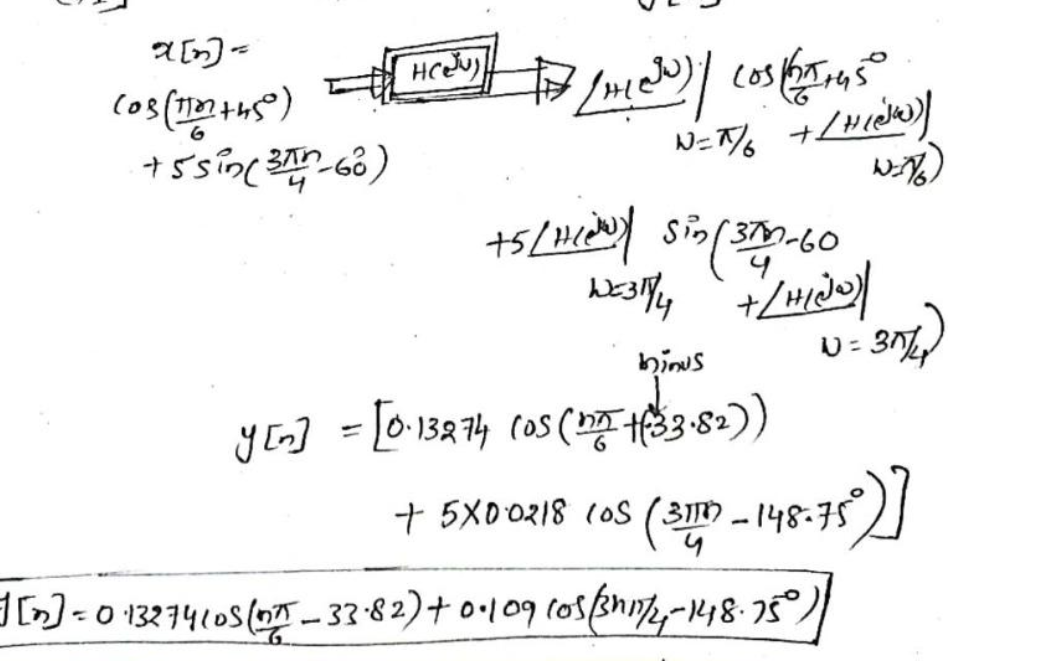 x[n] =
cos(πn/6 + 45°)
+ 5 sin(3πn/4 - 60°)
H(e^jω)
∠H(e^jω)| ω=π/6 cos(nπ/6 + 45°
+ ∠H(e^jω)| ω=π/6)
+5 ∠H(e^jω)| ω=3π/4 sin(3πn/4 - 60
+ ∠H(e^jω)| ω=3π/4)
minus
y[n] = [0.13274 cos(nπ/6 + (-33.82))
+ 5×0.0218 cos(3πn/4 - 148.75°)]
y[n] = 0.13274 cos(nπ/6 - 33.82) + 0.109 cos(3nπ/4 - 148.75°)